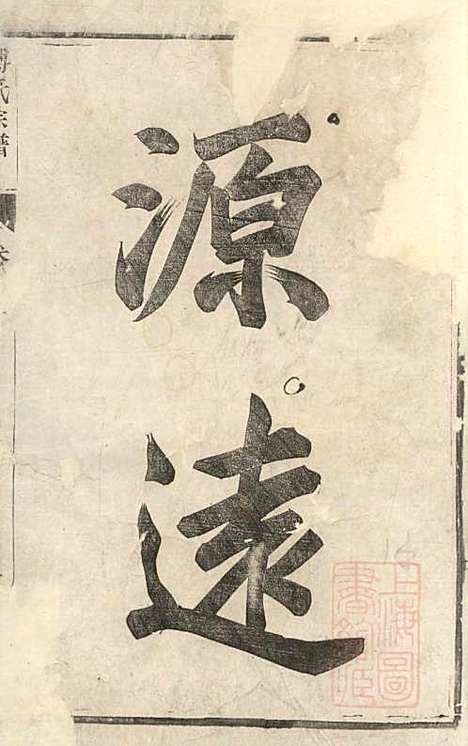 源遠
上海圖
書館藏
氏宗譜